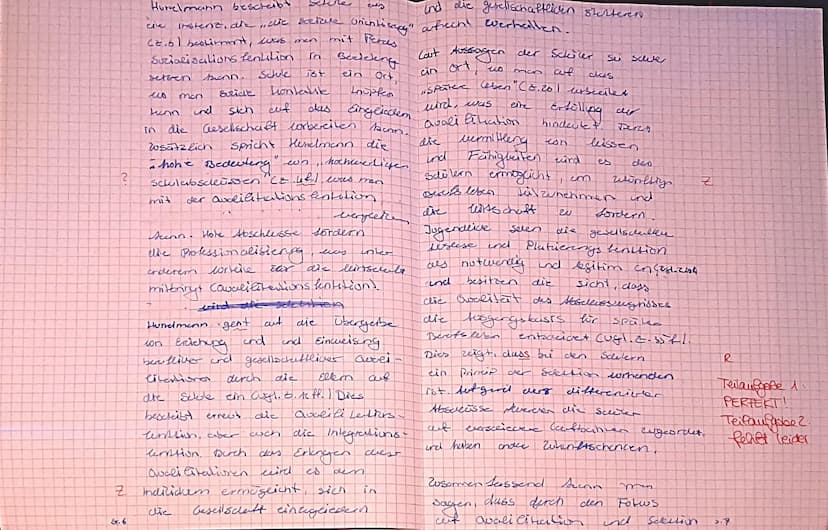 Hurrelmann beschreibt Schule als
eine Instanz, die "die soziale Orientierung"
(Z.8) bestimmt, was man mit Fends
Sozialisationsfunktion in Beziehung
setzen kann. Schule ist ein Ort,
wo man soziale Kontakte knüpfen
kann und sich auf das Eingliedern
in die Gesellschaft vorbereiten kann.
Zusätzlich spricht Hurrelmann die
"hohe Bedeutung" von "hochwertigen
? Schulabschlüssen" was man
mit der Qualifikationsfunktion
vergleichen
kann. Hohe Abschlüsse fördern
die Professionalisierung, was unter
anderem Vorteile für die Wirtschaft
mitbringt (Qualifikationsfunktion).
Hurrelmann geht auf die Übergabe
von Erziehung und und Einweisung
beruflicher und gesellschaftlicher Quali-
fikationen durch die Eltern auf
die Schule ein (vgl. ). Dies
beschreibt erneut die Qualifikations-
funktion, aber auch die Integrations-
funktion. Durch das Erlangen dieser
Qualifikationen wird es dem
Z Individuum ermöglicht, sich in
die Gesellschaft einzugliedern
S.6
und die gesellschaftlichen Strukturen
aufrecht erhalten.
Laut Aussagen der Schüler sei Schule
ein Ort, wo man auf das
"spätere Leben" (Z.20) vorbereitet
wird, was eine Erfüllung der
Qualifikation hindeutet. Durch
die Vermittlung von Wissen
und Fähigkeiten wird es den
Schülern ermöglicht, am künftigen Z
Berufsleben teilzunehmen und
die Wirtschaft zu fördern.
Jugendliche sehen die gesellschaftliche
Auslese und Platzierungsfunktion
als notwendig und legitim an
und besitzen die Sicht, dass
die Qualität des Abschlusszeugnisses
die Ausgangsbasis für späteren
Berufsleben entscheidet (vgl. Z.33f.).
Dies zeigt, dass bei den Schülern
ein Prinzip der Selektion vorhanden
ist. Aufgrund der differenzierten
Abschlüsse werden die Schüler
auf verschiedene Laufbahnen zugeordnet,
und haben andere Zukunftschancen.
R
Teilaufgabe 1
PERFEKT!
Teilaufgabe 2
fehlt leider
Zusammenfassend kann man
sagen, dass durch den Fokus
auf Qualifikation und Selektion S.7